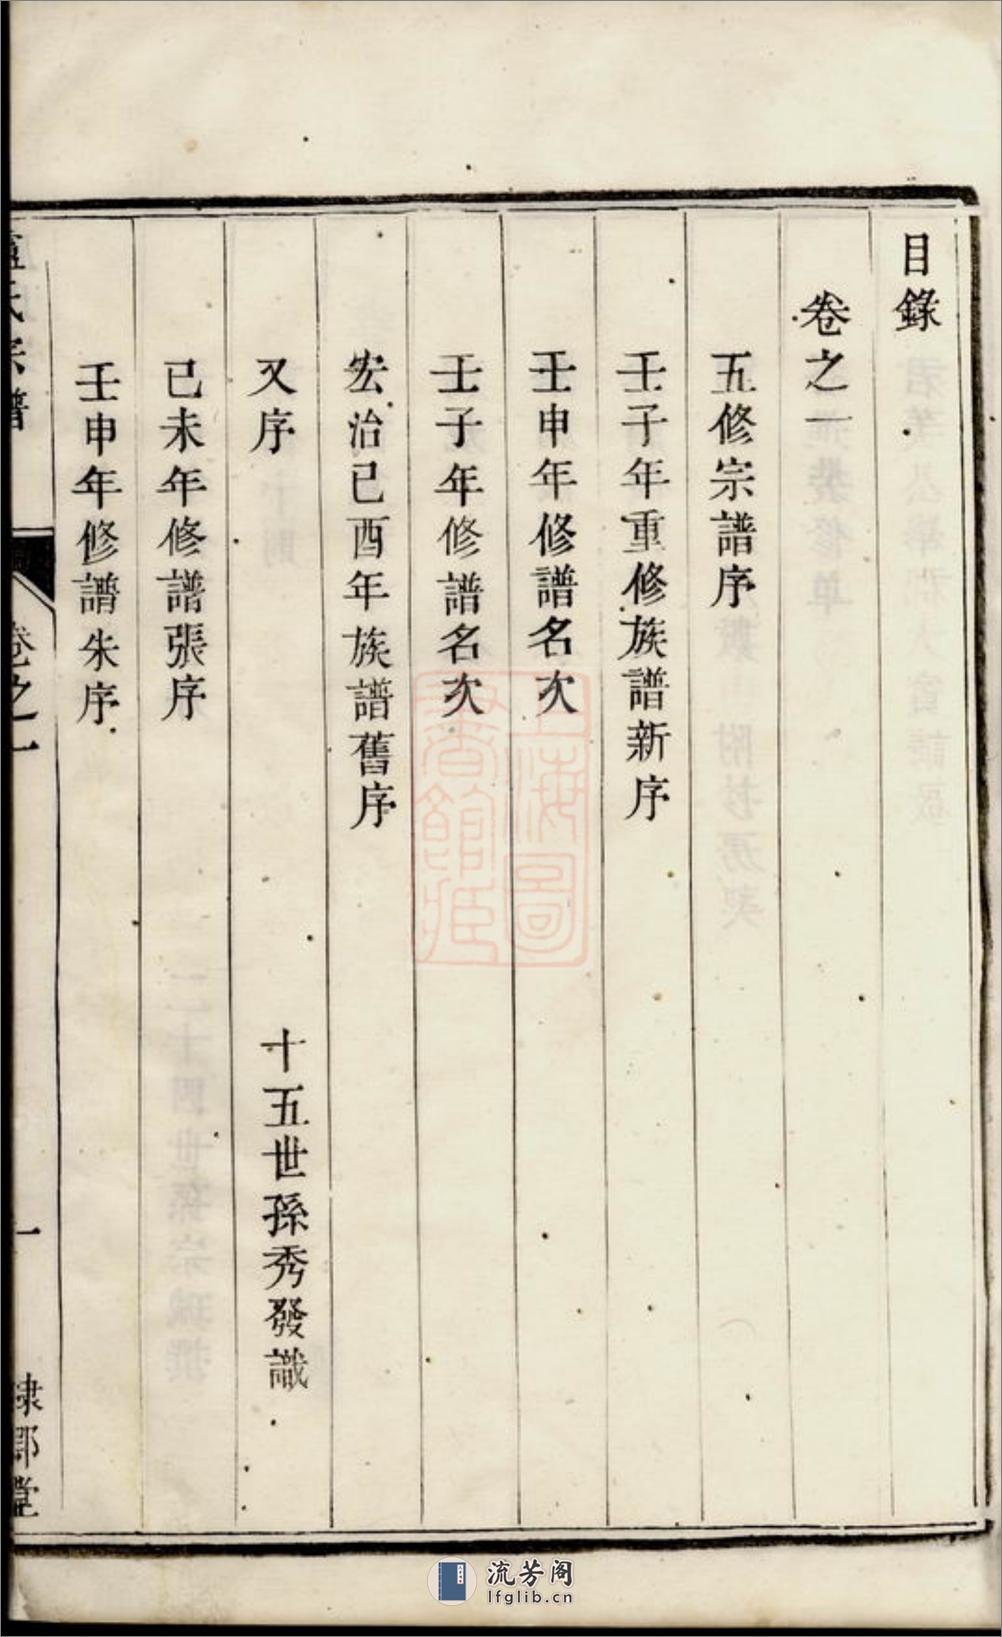 目錄
卷之一
五修宗譜序
壬子年重修族譜新序
壬申年修譜名次
壬子年修譜名次
宏治己酉年族譜舊序
又序 十五世孫秀發識
己未年修譜張序
壬申年修譜朱序
氏宗譜 卷之一 一 堂
上海圖書館藏
流芳阁
lfglib.cn